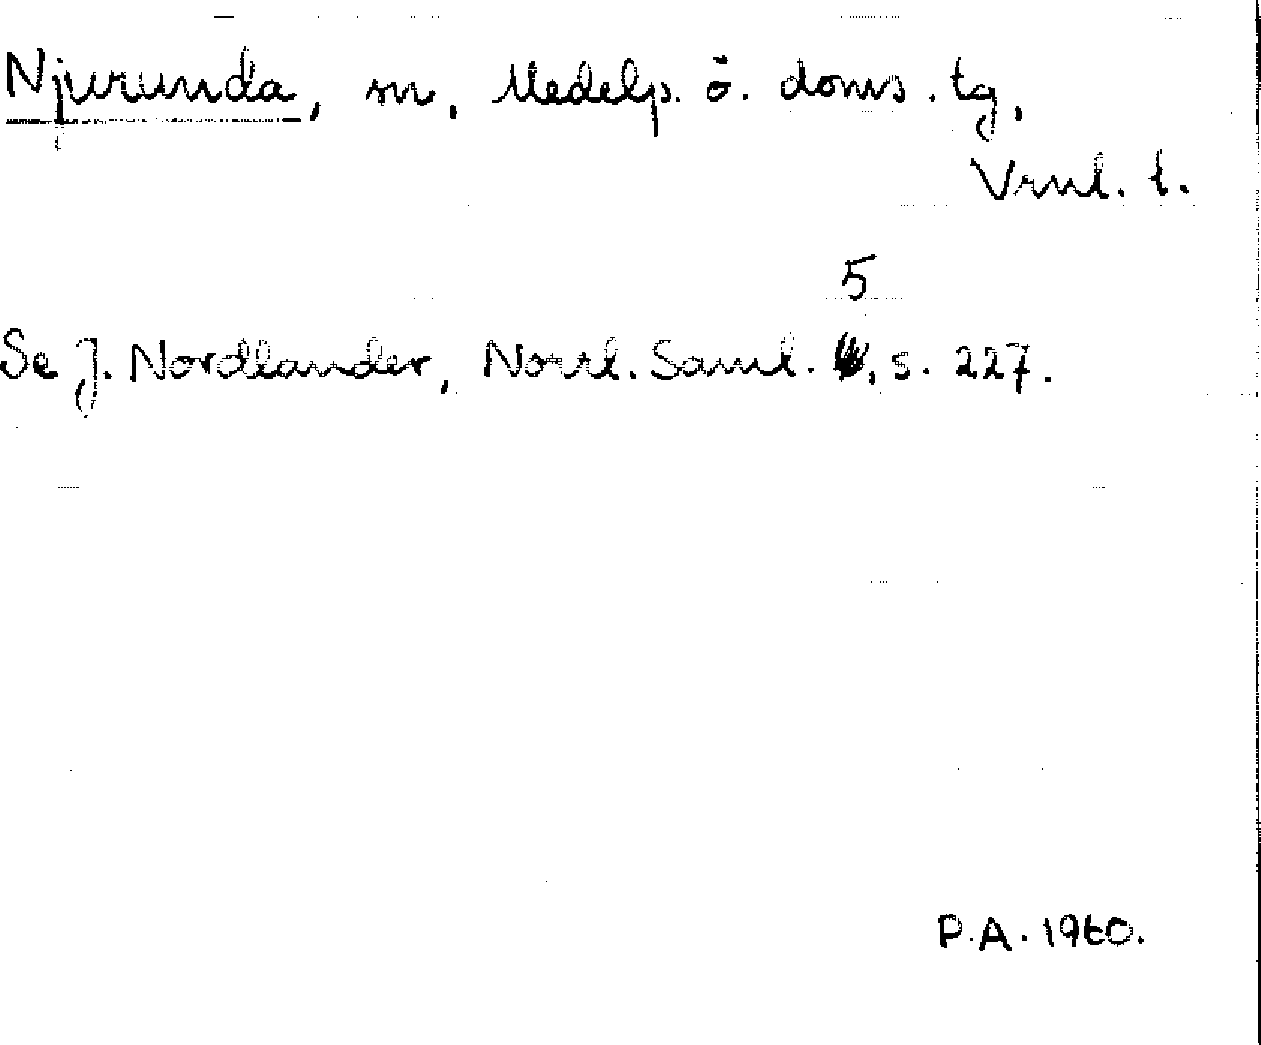 Njurunda, sn, Medelp. ö. doms. tg,
Vrnl. l.
5
Se J. Nordlander, Norrl. Saml. , s. 227.
P.A. 1960.